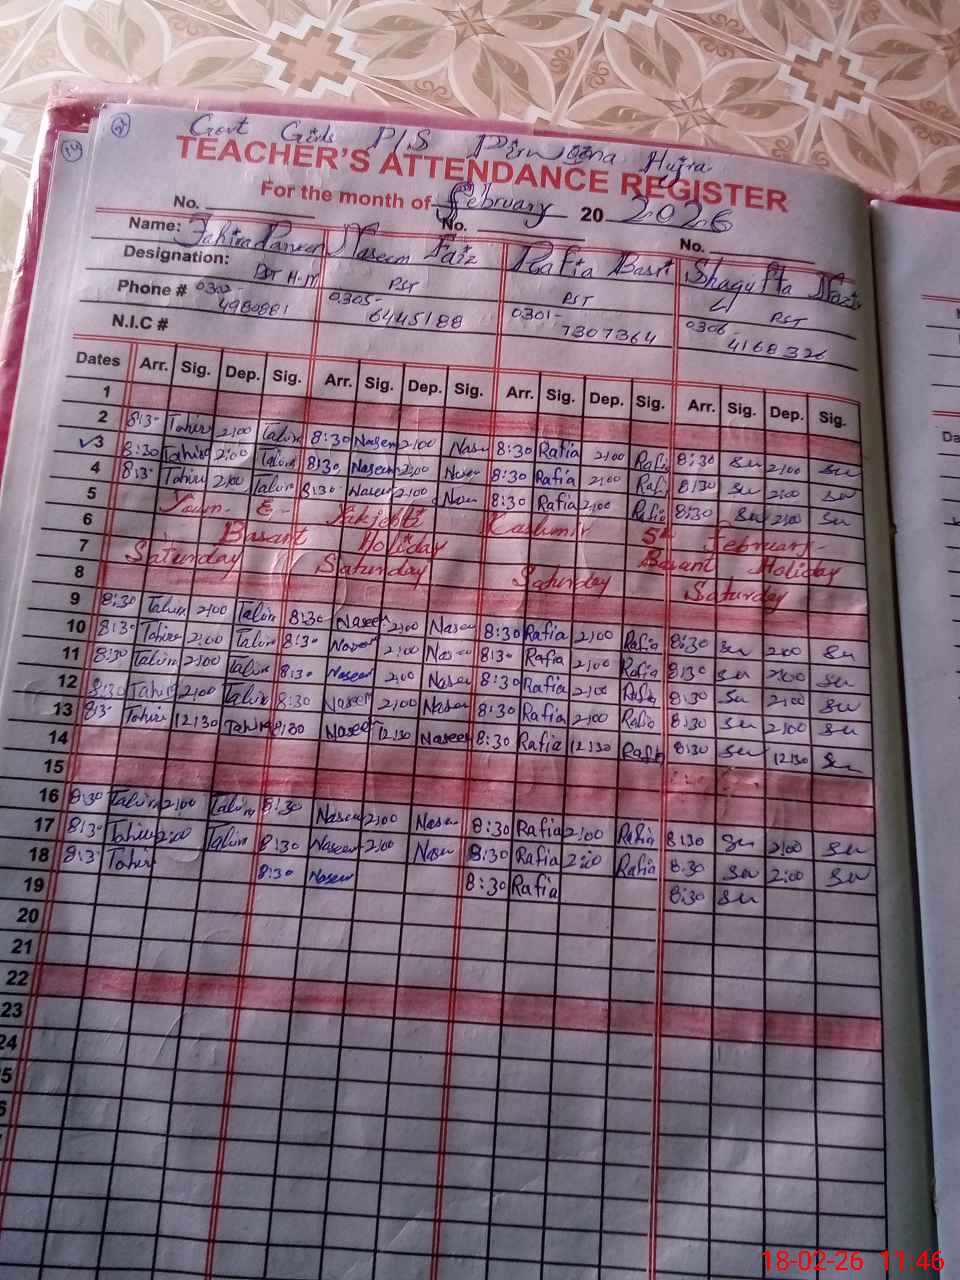 Govt Girls P/S Hujra
TEACHER'S ATTENDANCE REGISTER
For the month of February 20 2026
No. No. No.
Name: Tahira Parveen Naseem Faiz Rafia Basri Shagufta Naz
Designation: PST H.M PST PST PST
Phone # 0302- 4980881 0305- 6445188 0301- 7307364 0306- 4168326
N.I.C #
Dates Arr. Sig. Dep. Sig. Arr. Sig. Dep. Sig. Arr. Sig. Dep. Sig. Arr. Sig. Dep. Sig.
1
2 8:30 Tahira 2:00 Tahira 8:30 Naseem 2:00 Naseem 8:30 Rafia 2:00 Rafia 8:30 Su 2:00 Su
3 8:30 Tahira 2:00 Tahira 8:30 Naseem 2:00 Naseem 8:30 Rafia 2:00 Rafia 8:30 Su 2:00 Su
4 8:30 Tahira 2:00 Tahira 8:30 Naseem 2:00 Naseem 8:30 Rafia 2:00 Rafia 8:30 Su 2:00 Su
5 Youm-E-Yakjehti Kashmir 5th February
6 Basant Holiday Basant Holiday
7 Saturday Saturday Saturday Saturday
8
9 8:30 Tahira 2:00 Tahira 8:30 Naseem 2:00 Naseem 8:30 Rafia 2:00 Rafia 8:30 Su 2:00 Su
10 8:30 Tahira 2:00 Tahira 8:30 Naseem 2:00 Naseem 8:30 Rafia 2:00 Rafia 8:30 Su 2:00 Su
11 8:30 Tahira 2:00 Tahira 8:30 Naseem 2:00 Naseem 8:30 Rafia 2:00 Rafia 8:30 Su 2:00 Su
12 8:30 Tahira 2:00 Tahira 8:30 Naseem 2:00 Naseem 8:30 Rafia 2:00 Rafia 8:30 Su 2:00 Su
13 8:30 Tahira 12:30 Tahira 8:30 Naseem 12:30 Naseem 8:30 Rafia 12:30 Rafia 8:30 Su 12:30 Su
14
15
16 8:30 Tahira 2:00 Tahira 8:30 Naseem 2:00 Naseem 8:30 Rafia 2:00 Rafia 8:30 Su 2:00 Su
17 8:30 Tahira 2:00 Tahira 8:30 Naseem 2:00 Naseem 8:30 Rafia 2:00 Rafia 8:30 Su 2:00 Su
18 8:30 Tahira 8:30 Naseem 8:30 Rafia 8:30 Su
19
20
21
22
23
24
5
18-02-26 11:46